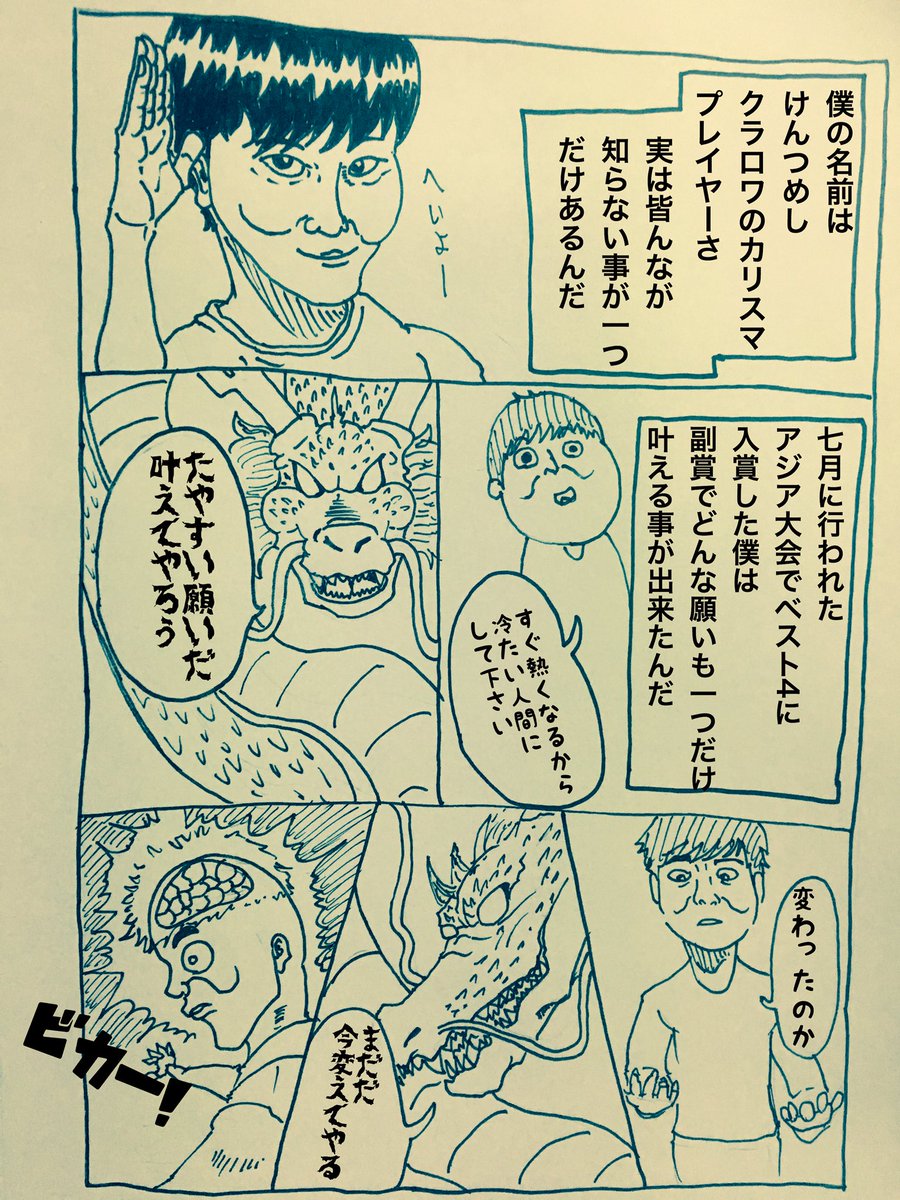 僕の名前は
けんつめし
クラロワのカリスマ
プレイヤーさ
実は皆んなが
知らない事が一つ
だけあるんだ
へいよー
七月に行われた
アジア大会でベスト4に
入賞した僕は
副賞でどんな願いも一つだけ
叶える事が出来たんだ
すぐ熱くなるから
冷たい人間に
して下さい
たやすい願いだ
叶えてやろう
変わったのか
まだだ
今変えてやる
ビカー!